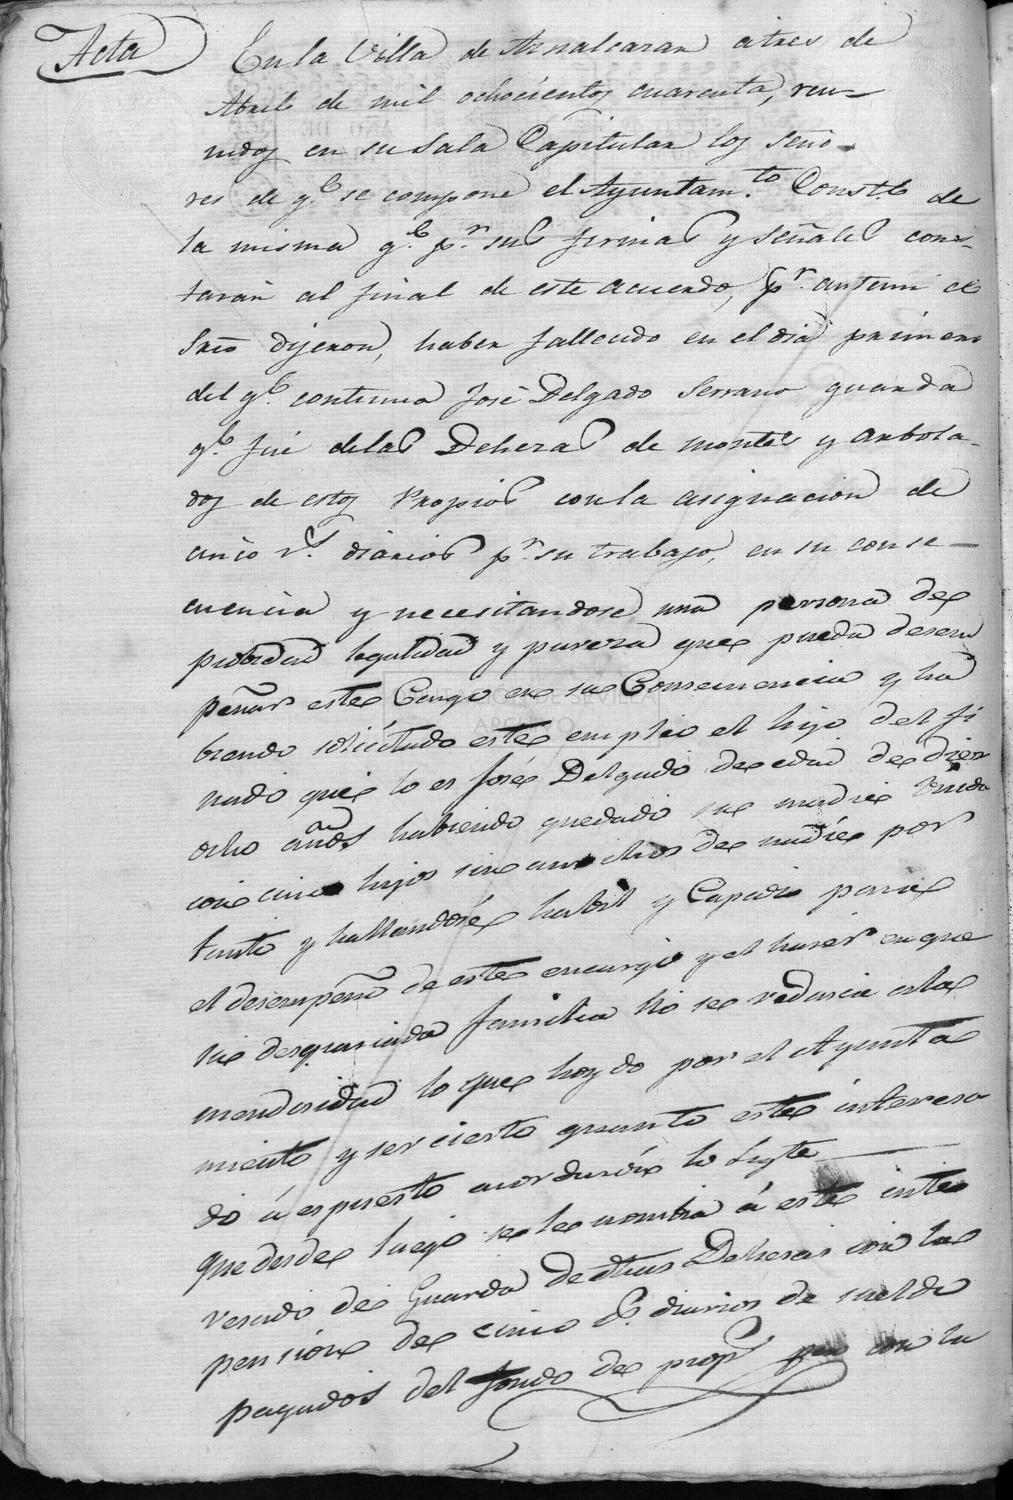 Acta
En la Villa de Aznalcazar a tres de
Abril de mil ochocientos cuarenta, reu-
nidos en su Sala Capitular los Seño-
res de q.e se compone el Ayuntam.to Const.l de
la misma q.e p.r sus firmas y señales cons-
tarán al final de este acuerdo, p.r antemi el
Srio dijeron, haber fallecido en el dia primero
del q.e continua José Delgado Serrano guarda
q.e fué de las Dehezas de montes y arbola-
dos de estos Propios con la asignacion de
cinco r.s diarios p.r su trabajo, en su conse-
cuencia y necesitandose una persona de
probidad legalidad y pureza que pueda desem
peñar este Cargo en su Consecuencia y ha
biendo solicitado este empleo el hijo del fi
nado que lo es José Delgado de edad de diez
ocho años habiendo quedado su madre Viuda
con cinco hijos sin ausilios de nadie por
tanto y hallandose habil y Capáz para
el desempeño de este encargo y el haser en que
su desgraciada familia no se redusca a la
mendisidad lo que hoydo por el Ayunta
miento y ser cierto quanto este interesa
do á espuesto acordaron lo Sigte
que desde luego se le nombra á este inte
resado de Guarda de dhas Dehesas con la
pension de cinco r.s diarios de sueldo
pagados del fondo de prop.s con la